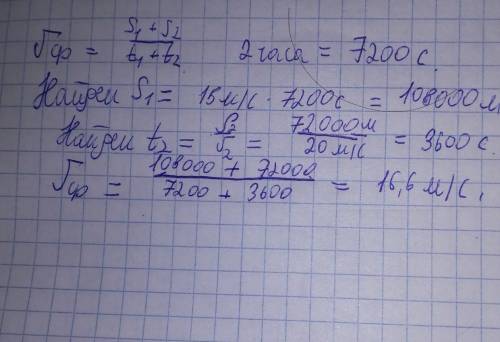 Vср = S₁ + S₂ / t₁ + t₂ 2 часа = 7200 с.
Найдем S₁ = 15 м/с · 7200 с = 108000 м
Найдем t₂ = S₂ / V₂ = 72000 м / 20 м/с = 3600 с.
Vср = 108000 + 72000 / 7200 + 3600 = 16,6 м/с.